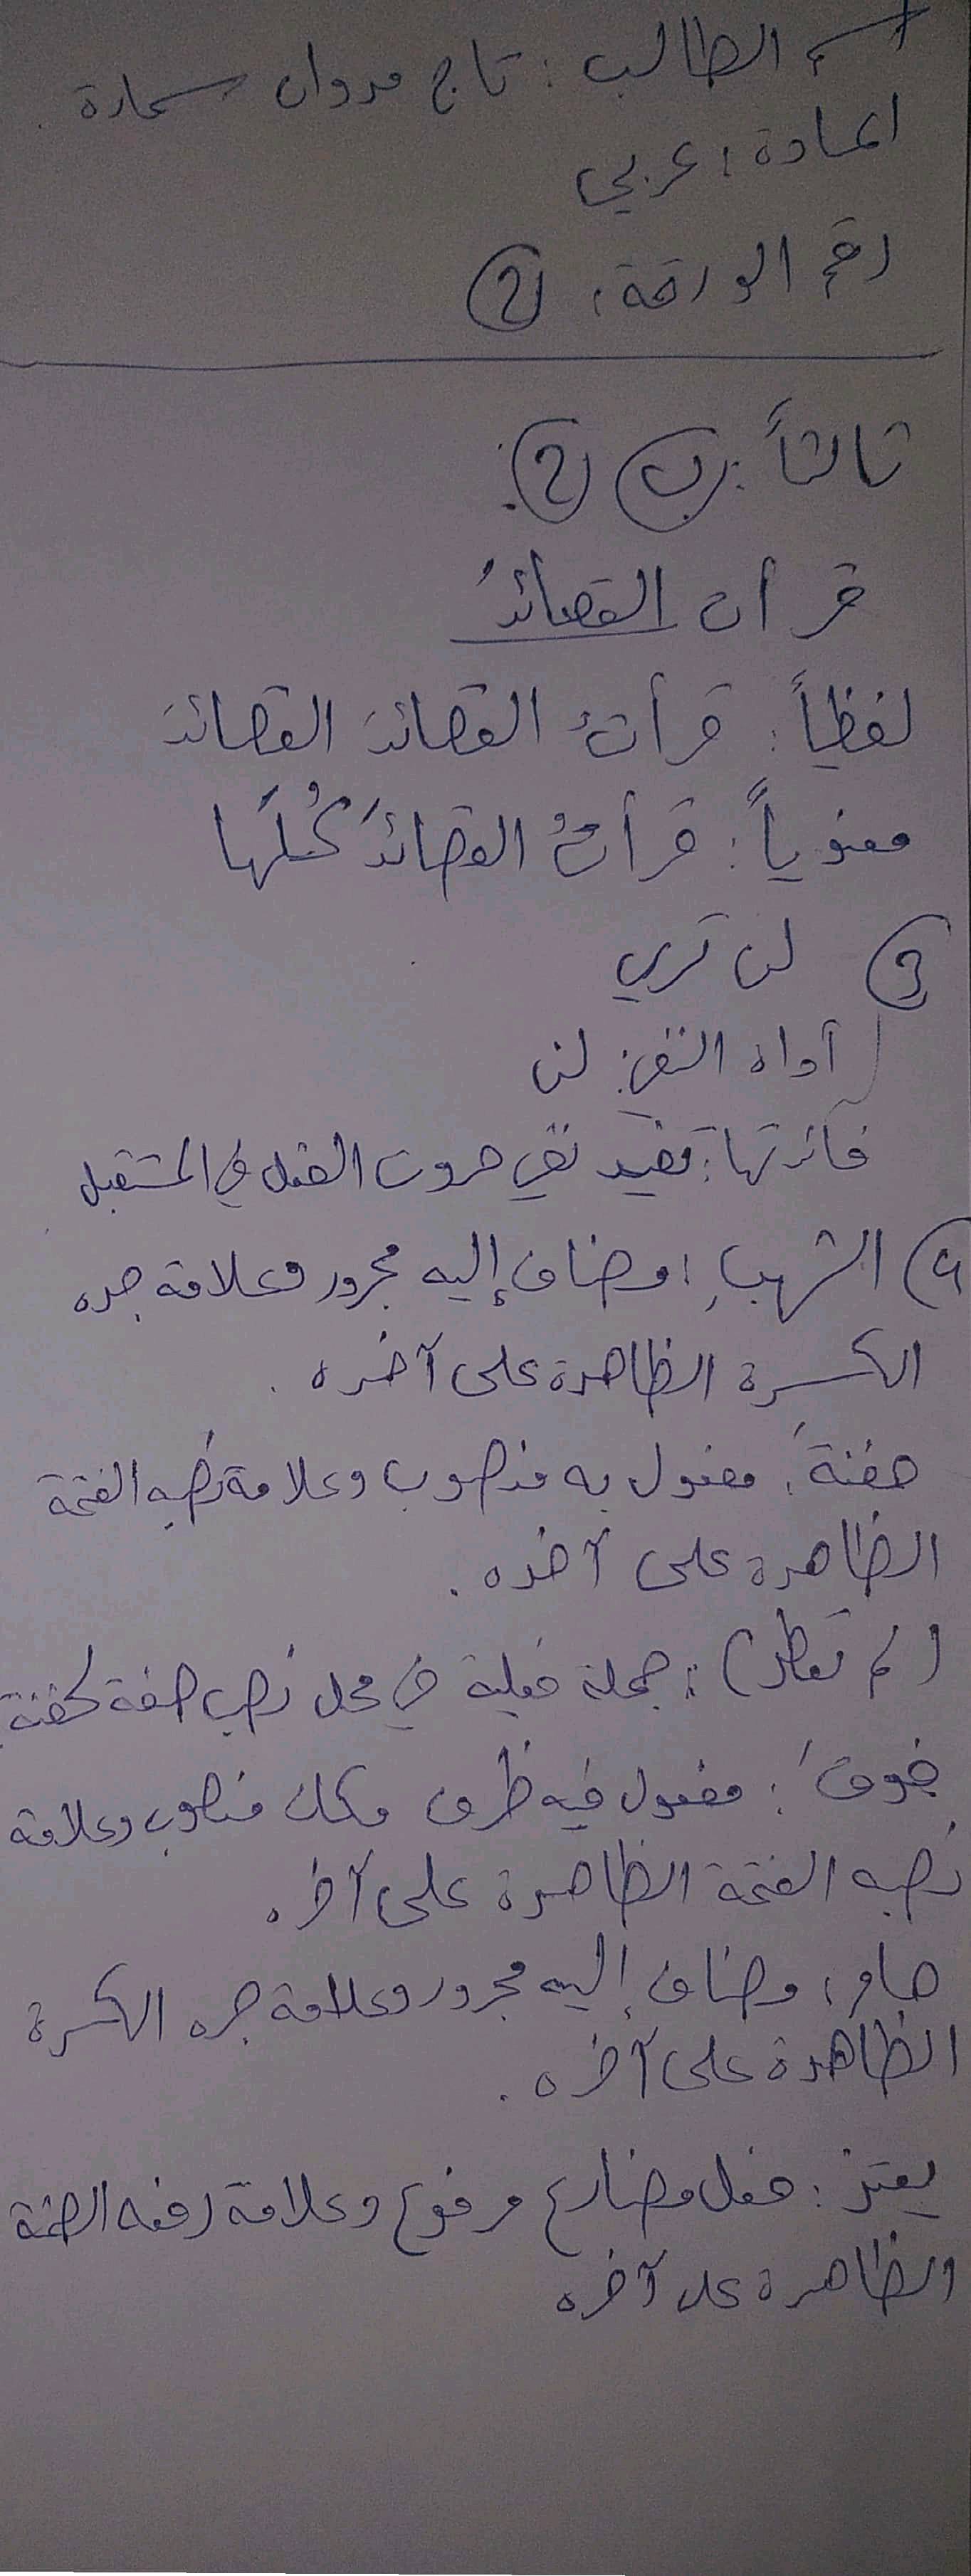 اسم الطالب : تاج مروان سعادة .
المادة : عربي
رقم الورقة : ٢
ثالثاً : ب ٢ .
قرأت القصائدَ
لفظياً : قرأتُ القصائدَ القصائدَ
معنوياً : قرأتُ القصائدَ كُلَّها
٣ لن تري
أداه النفي : لن
فائدتها : تفيد نفي حدوث الفعل في المستقبل
٤ الشهبِ : مضاف إليه مجرور وعلامة جره
الكسرة الظاهرة على آخره .
حفنةً : مفعول به منصوب وعلامة نصبه الفتحة
الظاهرة على آخره .
( لم تعطر ) : جملة فعلية في محل نصب صفة لحفنة .
فوقَ : مفعول فيه ظرف مكان منصوب وعلامة
نصبه الفتحة الظاهرة على آخره .
مضاف إليه مجرور وعلامة جره الكسرة
الظاهرة على آخره .
يعتز : فعل مضارع مرفوع وعلامة رفعه الضمة
الظاهرة على آخره